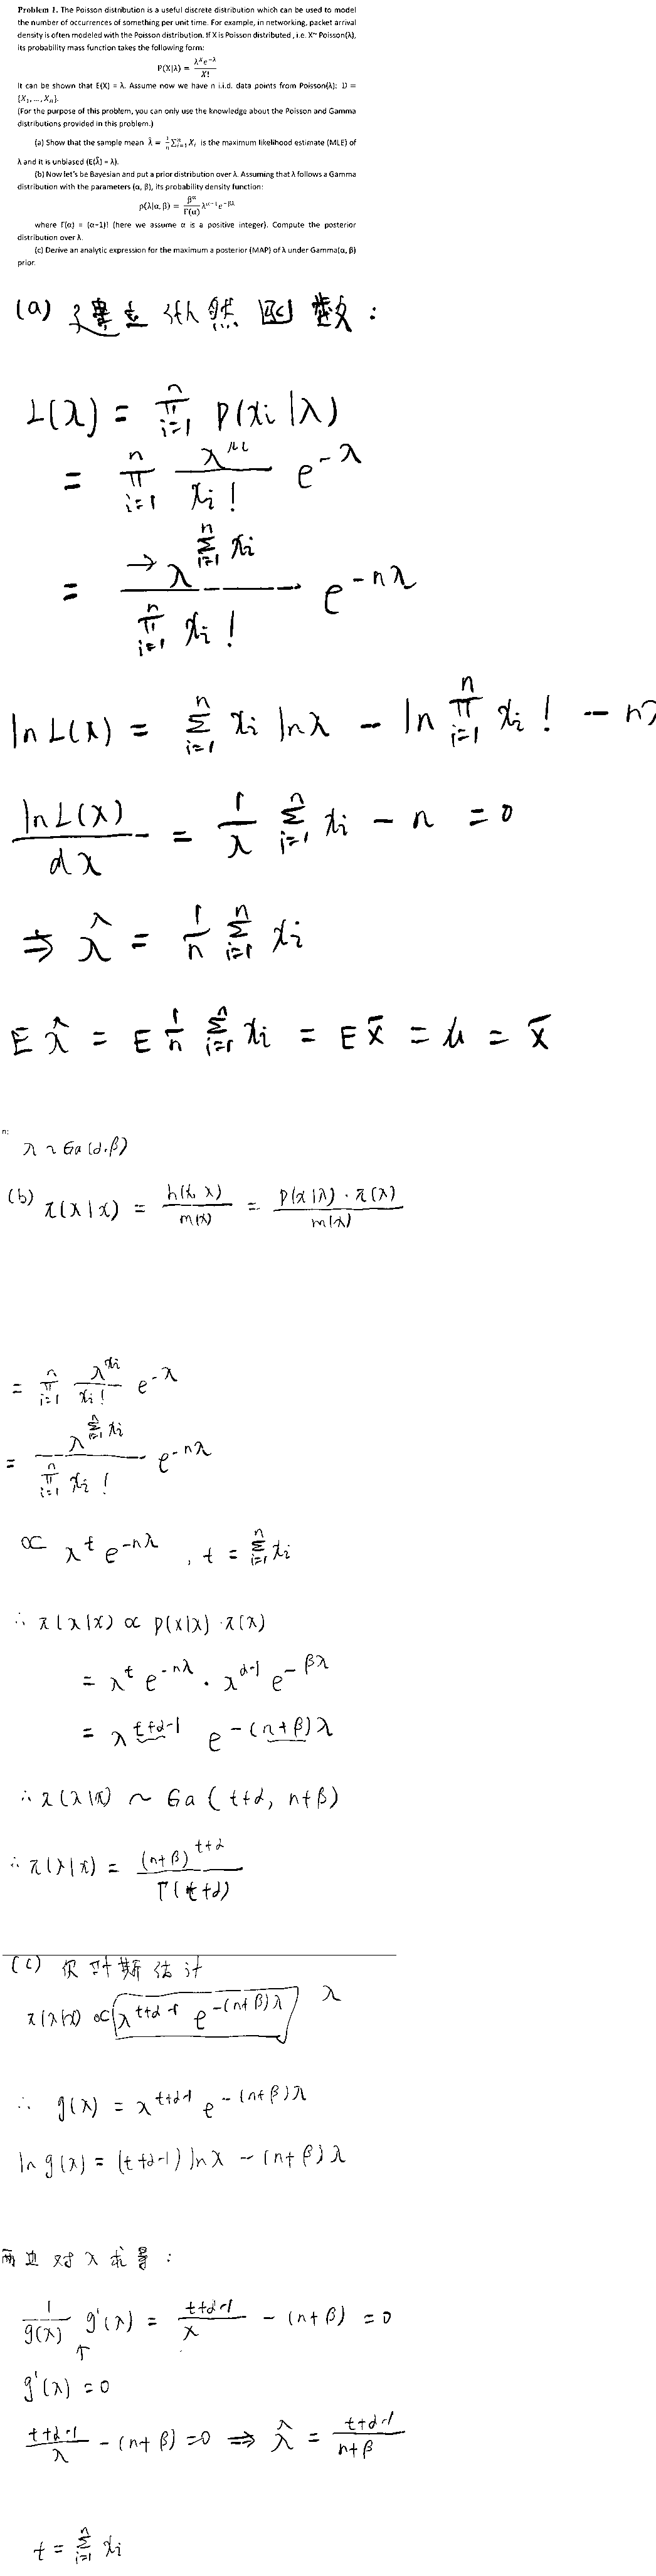 Problem 1. The Poisson distribution is a useful discrete distribution which can be used to model
the number of occurrences of something per unit time. For example, in networking, packet arrival
density is often modeled with the Poisson distribution. If X is Poisson distributed, i.e. X~ Poisson(λ),
its probability mass function takes the following form:
P(X|λ) = λ^X e^{-λ} / X!
It can be shown that E(X) = λ. Assume now we have n i.i.d. data points from Poisson(λ): D =
{X₁,...,Xₙ}.
(For the purpose of this problem, you can only use the knowledge about the Poisson and Gamma
distributions provided in this problem.)
(a) Show that the sample mean λ̂ = 1/n ∑_{i=1}^n X_i is the maximum likelihood estimate (MLE) of
λ and it is unbiased (E(λ̂) = λ).
(b) Now let's be Bayesian and put a prior distribution over λ. Assuming that λ follows a Gamma
distribution with the parameters (α, β), its probability density function:
p(λ|α, β) = β^α / Γ(α) λ^{α-1} e^{-βλ}
where Γ(α) = (α-1)! (here we assume α is a positive integer). Compute the posterior
distribution over λ.
(c) Derive an analytic expression for the maximum a posterior (MAP) of λ under Gamma(α, β)
prior.
(a) 建立似然函数:
L(λ) = ∏_{i=1}^n P(x_i|λ)
= ∏_{i=1}^n λ^{x_i} / x_i! e^{-λ}
= → λ^{∑_{i=1}^n x_i} / ∏_{i=1}^n x_i! e^{-nλ}
ln L(λ) = ∑_{i=1}^n x_i ln λ - ln ∏_{i=1}^n x_i! - nλ
ln L(λ) / dλ = 1/λ ∑_{i=1}^n x_i - n = 0
⇒ λ̂ = 1/n ∑_{i=1}^n x_i
E λ̂ = E 1/n ∑_{i=1}^n x_i = E x̄ = μ = x̄
n:
λ ~ Ga(α,β)
(b) π(λ|x) = h(x, λ) / m(x) = p(x|λ)·π(λ) / m(x)
= ∏_{i=1}^n λ^{x_i} / x_i! e^{-λ}
= λ^{∑_{i=1}^n x_i} / ∏_{i=1}^n x_i! e^{-nλ}
∝ λ^t e^{-nλ}, t = ∑_{i=1}^n x_i
∴ π(λ|x) ∝ p(x|λ)·π(λ)
= λ^t e^{-nλ} · λ^{α-1} e^{-βλ}
= λ^{t+α-1} e^{-(n+β)λ}
∴ π(λ|x) ~ Ga(t+α, n+β)
∴ π(λ|x) = (n+β)^{t+α} / Γ(t+α)
(c) 贝叶斯估计
π(λ|x) ∝ λ^{t+α-1} e^{-(n+β)λ} λ
∴ g(λ) = λ^{t+α-1} e^{-(n+β)λ}
ln g(λ) = (t+α-1) ln λ - (n+β) λ
两边对λ求导:
1/g(λ) g'(λ) = (t+α-1)/λ - (n+β) = 0
↑
g'(λ) = 0
(t+α-1)/λ - (n+β) = 0 ⇒ λ̂ = (t+α-1)/(n+β)
t = ∑_{i=1}^n x_i